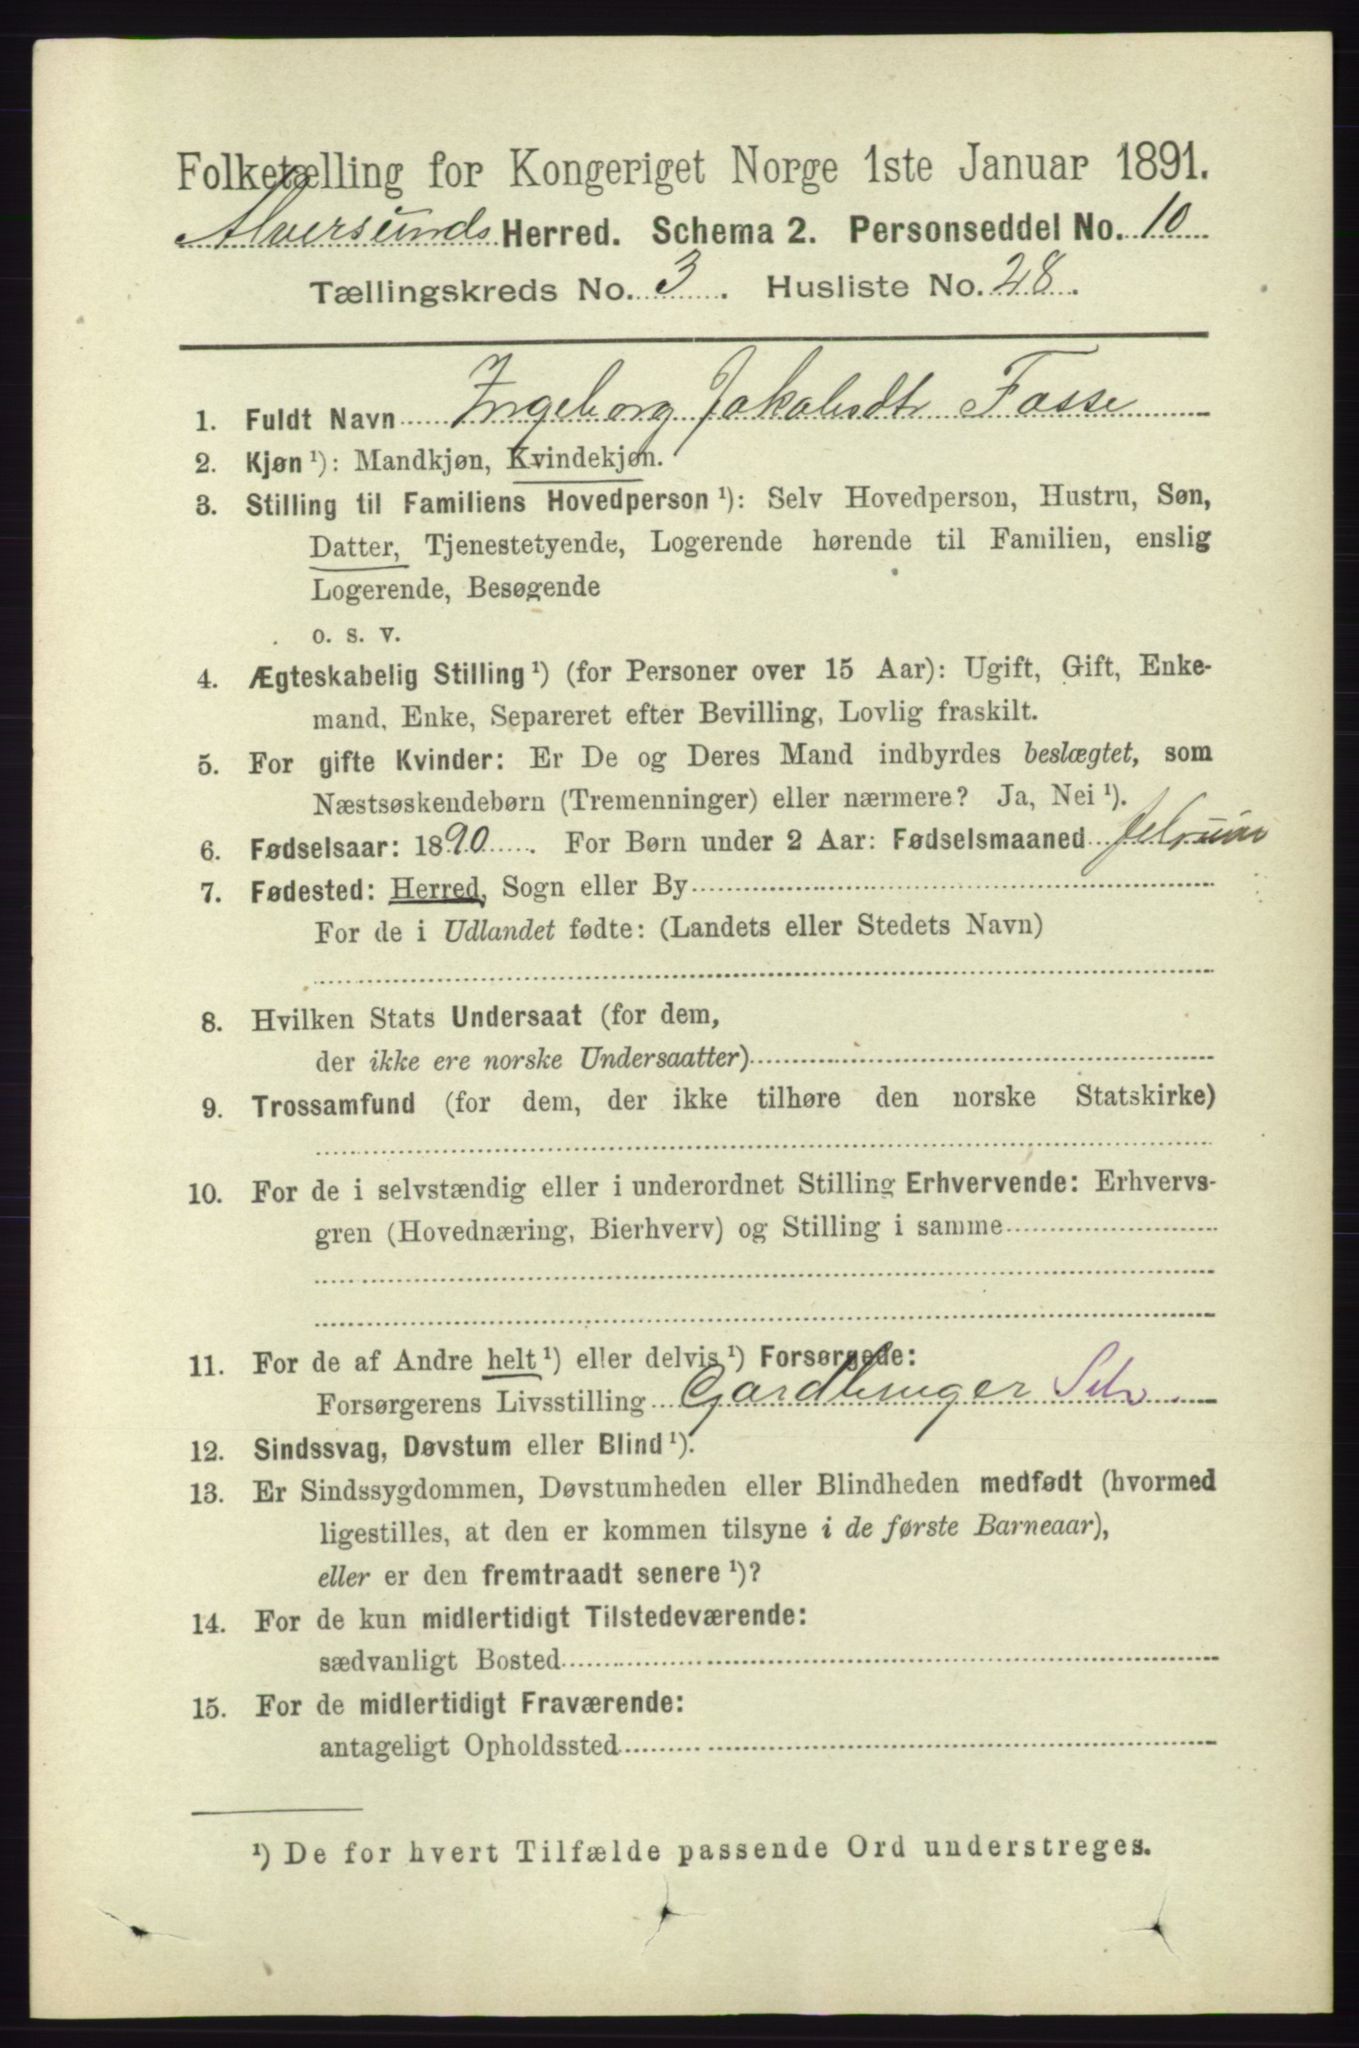 Folketælling for Kongeriget Norge 1ste Januar 1891.
Alversunds Herred. Schema 2. Personseddel No. 10
Tællingskreds No. 3. Husliste No. 28.
1. Fuldt Navn Ingeborg Jakobsdtr Fosse
2. Kjøn¹): Mandkjøn, Kvindekjøn.
3. Stilling til Familiens Hovedperson¹): Selv Hovedperson, Hustru, Søn,
Datter, Tjenestetyende, Logerende hørende til Familien, enslig
Logerende, Besøgende
o. s. v.
4. Ægteskabelig Stilling¹) (for Personer over 15 Aar): Ugift, Gift, Enke-
mand, Enke, Separeret efter Bevilling, Lovlig fraskilt.
5. For gifte Kvinder: Er De og Deres Mand indbyrdes beslægtet, som
Næstsøskendebørn (Tremenninger) eller nærmere? Ja, Nei¹).
6. Fødselsaar: 1890. For Børn under 2 Aar: Fødselsmaaned Februar
7. Fødested: Herred, Sogn eller By
For de i Udlandet fødte: (Landets eller Stedets Navn)
8. Hvilken Stats Undersaat (for dem,
der ikke ere norske Undersaatter)
9. Trossamfund (for dem, der ikke tilhøre den norske Statskirke)
10. For de i selvstændig eller i underordnet Stilling Erhvervende: Erhvervs-
gren (Hovednæring, Bierhverv) og Stilling i samme
11. For de af Andre helt¹) eller delvis¹) Forsørgede:
Forsørgerens Livsstilling Gardbruger Selv
12. Sindssvag, Døvstum eller Blind¹).
13. Er Sindssygdommen, Døvstumheden eller Blindheden medfødt (hvormed
ligestilles, at den er kommen tilsyne i de første Barneaar),
eller er den fremtraadt senere¹)?
14. For de kun midlertidigt Tilstedeværende:
sædvanligt Bosted
15. For de midlertidigt Fraværende:
antageligt Opholdssted
¹) De for hvert Tilfælde passende Ord understreges.